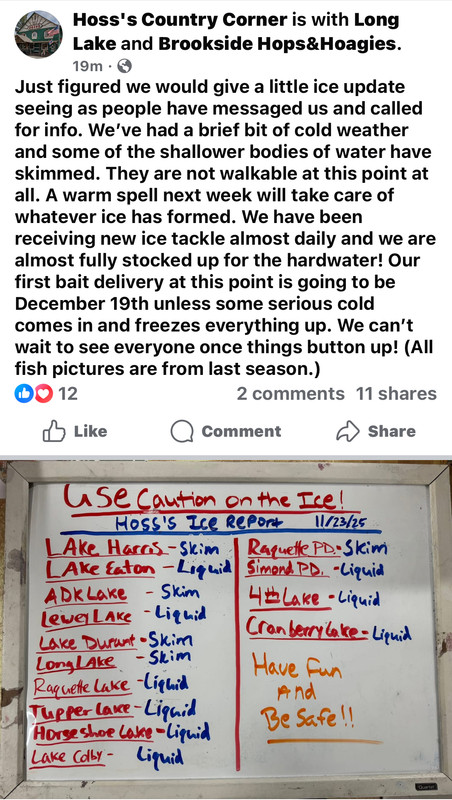 Hoss's Country Corner is with Long
Lake and Brookside Hops&Hoagies.
19m ·
Just figured we would give a little ice update
seeing as people have messaged us and called
for info. We've had a brief bit of cold weather
and some of the shallower bodies of water have
skimmed. They are not walkable at this point at
all. A warm spell next week will take care of
whatever ice has formed. We have been
receiving new ice tackle almost daily and we are
almost fully stocked up for the hardwater! Our
first bait delivery at this point is going to be
December 19th unless some serious cold
comes in and freezes everything up. We can't
wait to see everyone once things button up! (All
fish pictures are from last season.)
12 2 comments 11 shares
Like Comment Share
USE Caution on the Ice!
Hoss's Ice Report 11/23/25
LAke Harris - Skim
LAke Eaton - Liquid
ADK Lake - Skim
Lewey LAke - Liquid
Lake Durant - Skim
Long LAke - Skim
Raquette Lake - Liquid
Tupper Lake - Liquid
Horseshoe Lake - Liquid
Lake Colby - Liquid
Raquette PD. - Skim
Simond PD. - Liquid
4th Lake - Liquid
Cranberry Lake - Liquid
Have Fun
And
Be Safe!!
Quartet